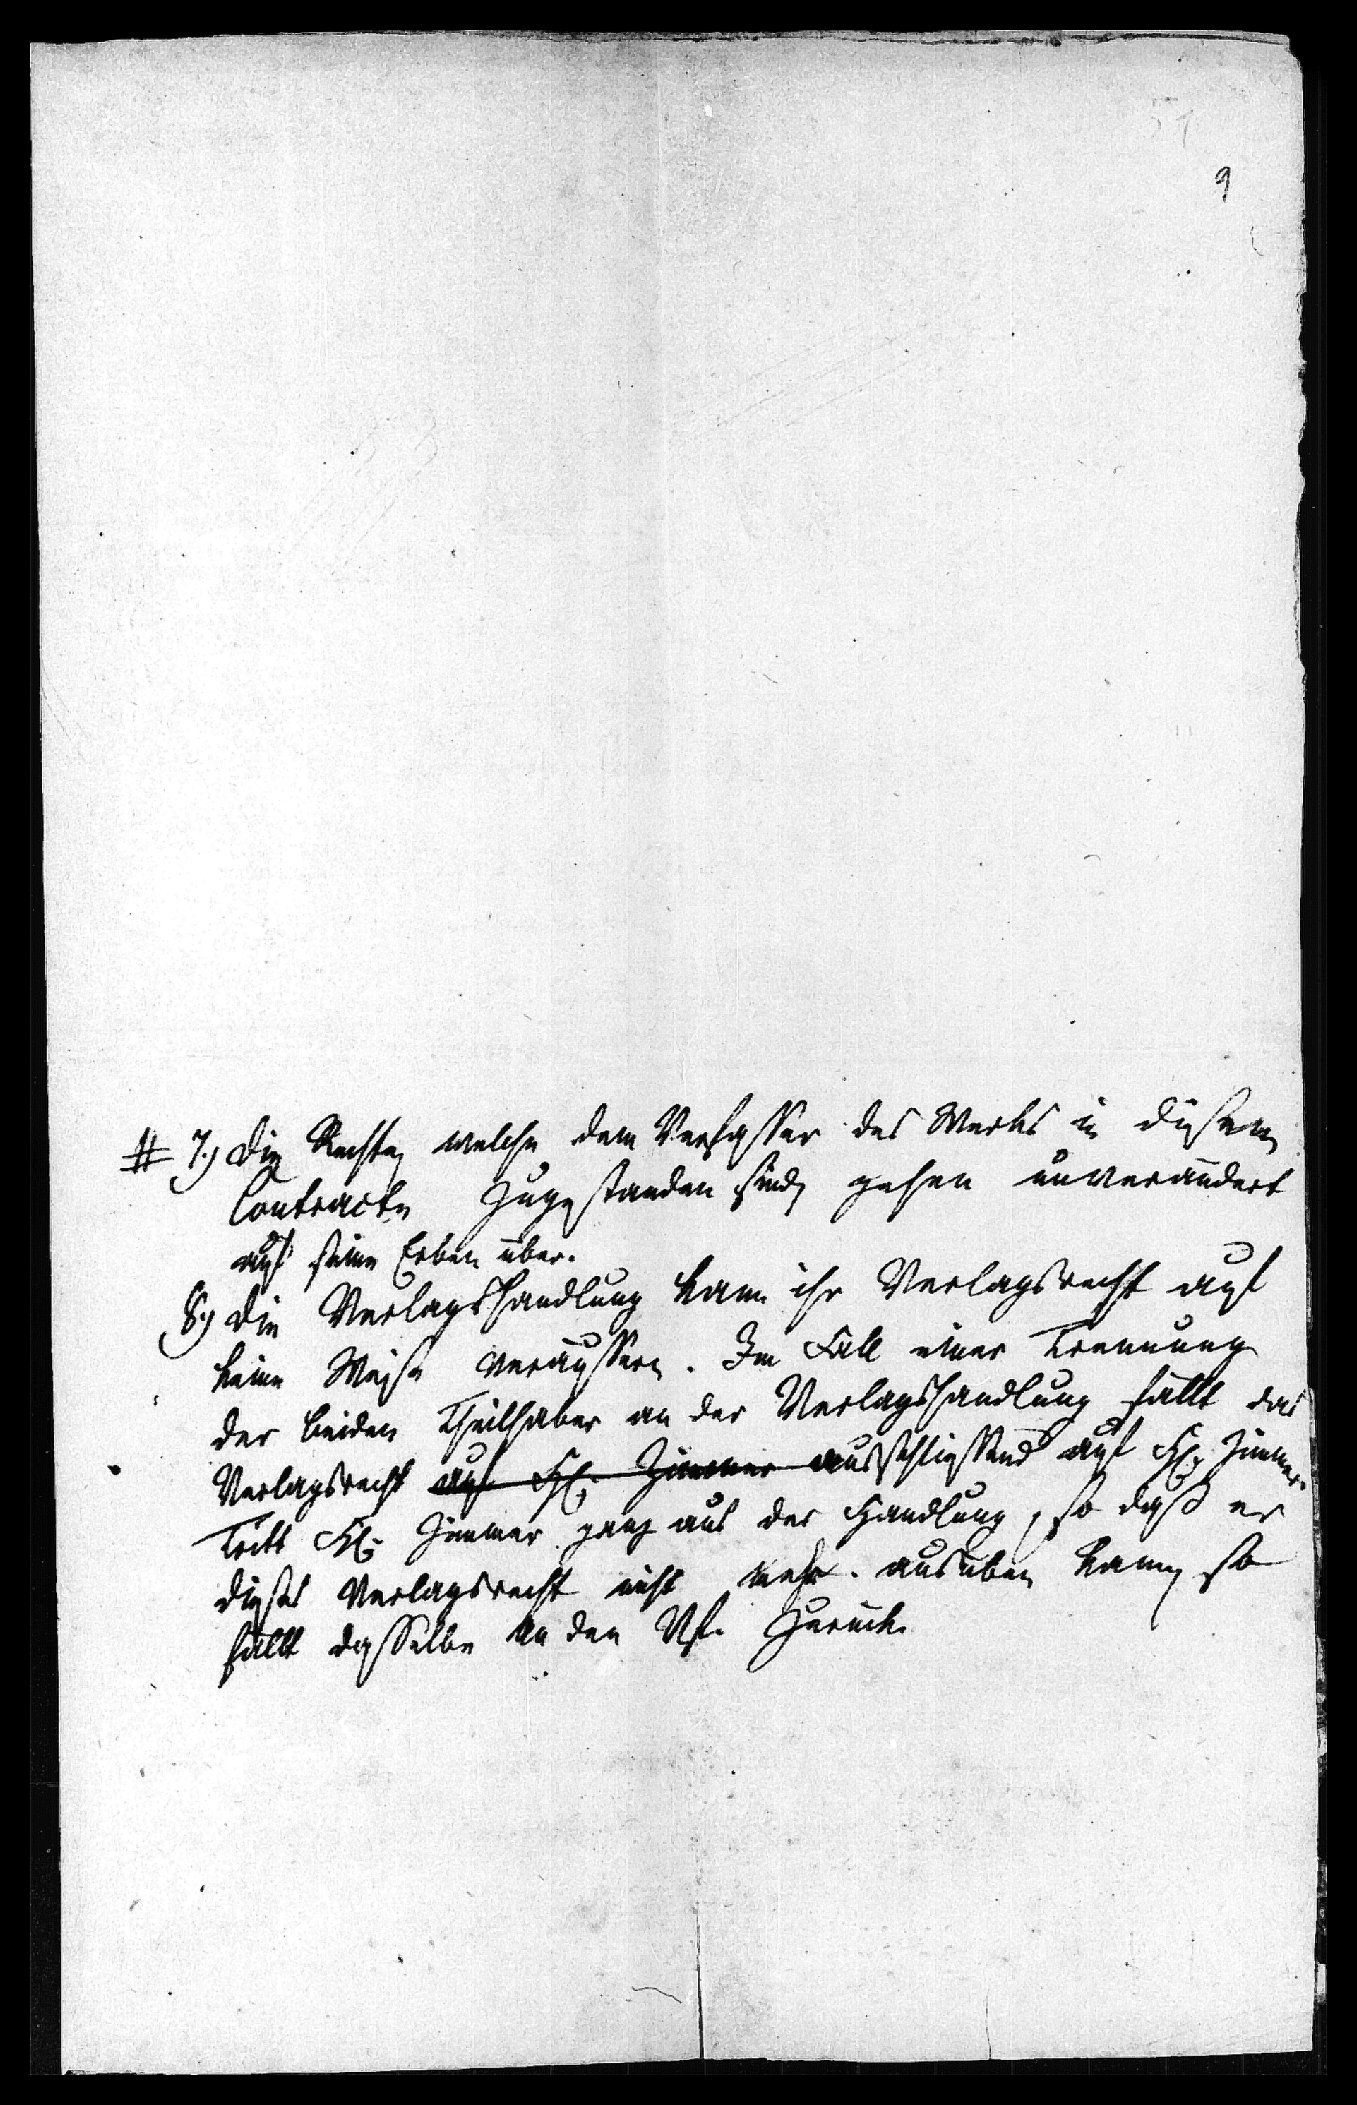 51
9
# 7.) Die Rechte, welche dem Verfasser des Werks in diesem
Contracte zugestanden sind, gehen unverändert
auf seine Erben über.
8.) Die Verlagshandlung kann ihr Verlagsrecht auf
keine Weise veräussern. Im Fall einer Trennung
der beiden Theilhaber an der Verlagshandlung fällt das
Verlagsrecht auf H. Zimmer ausschliessend auf H. Zimmer.
Tritt H. Zimmer ganz aus der Handlung, so daß er
dieses Verlagsrecht nicht mehr ausüben kann, so
fällt dasselbe an den Vf. zurück.